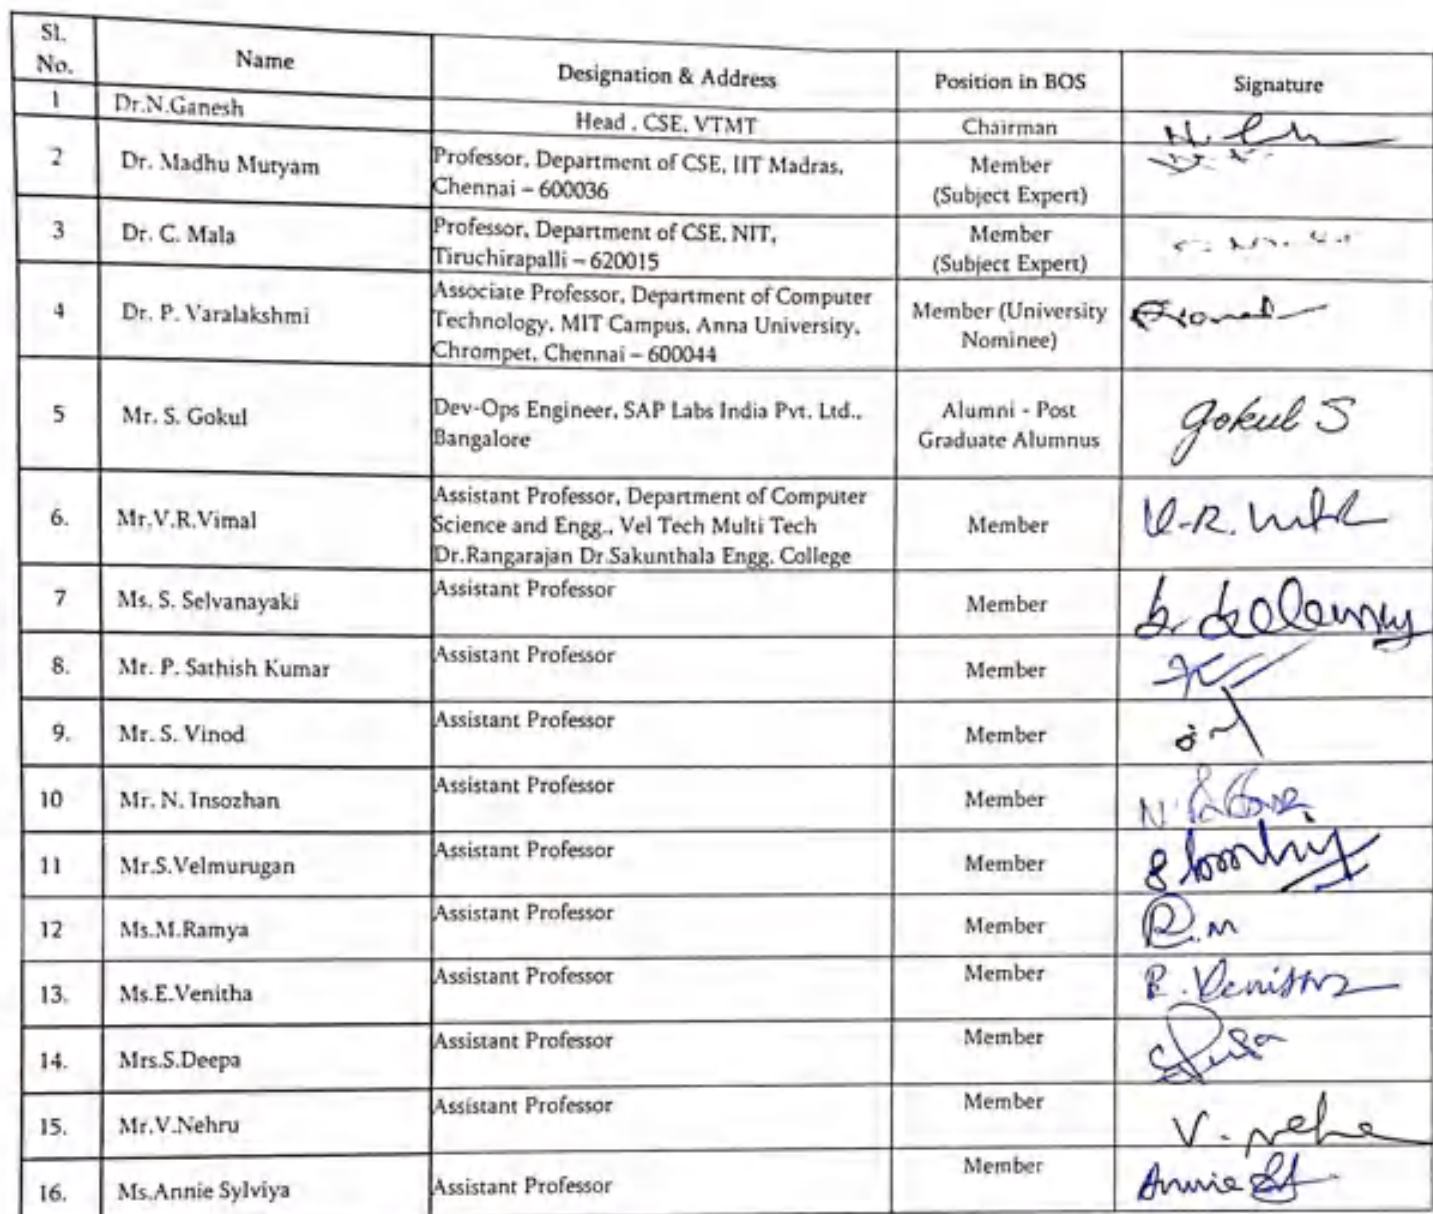 Sl.
No.
Name
Designation & Address
Position in BOS
Signature
1
Dr.N.Ganesh
Head , CSE, VTMT
Chairman
2
Dr. Madhu Mutyam
Professor, Department of CSE, IIT Madras,
Chennai – 600036
Member
(Subject Expert)
3
Dr. C. Mala
Professor, Department of CSE, NIT,
Tiruchirapalli – 620015
Member
(Subject Expert)
4
Dr. P. Varalakshmi
Associate Professor, Department of Computer
Technology, MIT Campus, Anna University,
Chrompet, Chennai – 600044
Member (University
Nominee)
5
Mr. S. Gokul
Dev-Ops Engineer, SAP Labs India Pvt. Ltd.,
Bangalore
Alumni - Post
Graduate Alumnus
Gokul S
6.
Mr.V.R.Vimal
Assistant Professor, Department of Computer
Science and Engg., Vel Tech Multi Tech
Dr.Rangarajan Dr.Sakunthala Engg. College
Member
7
Ms. S. Selvanayaki
Assistant Professor
Member
8.
Mr. P. Sathish Kumar
Assistant Professor
Member
9.
Mr. S. Vinod
Assistant Professor
Member
10
Mr. N. Insozhan
Assistant Professor
Member
11
Mr.S.Velmurugan
Assistant Professor
Member
12
Ms.M.Ramya
Assistant Professor
Member
R.M
13.
Ms.E.Venitha
Assistant Professor
Member
14.
Mrs.S.Deepa
Assistant Professor
Member
15.
Mr.V.Nehru
Assistant Professor
Member
16.
Ms.Annie Sylviya
Assistant Professor
Member
Annie